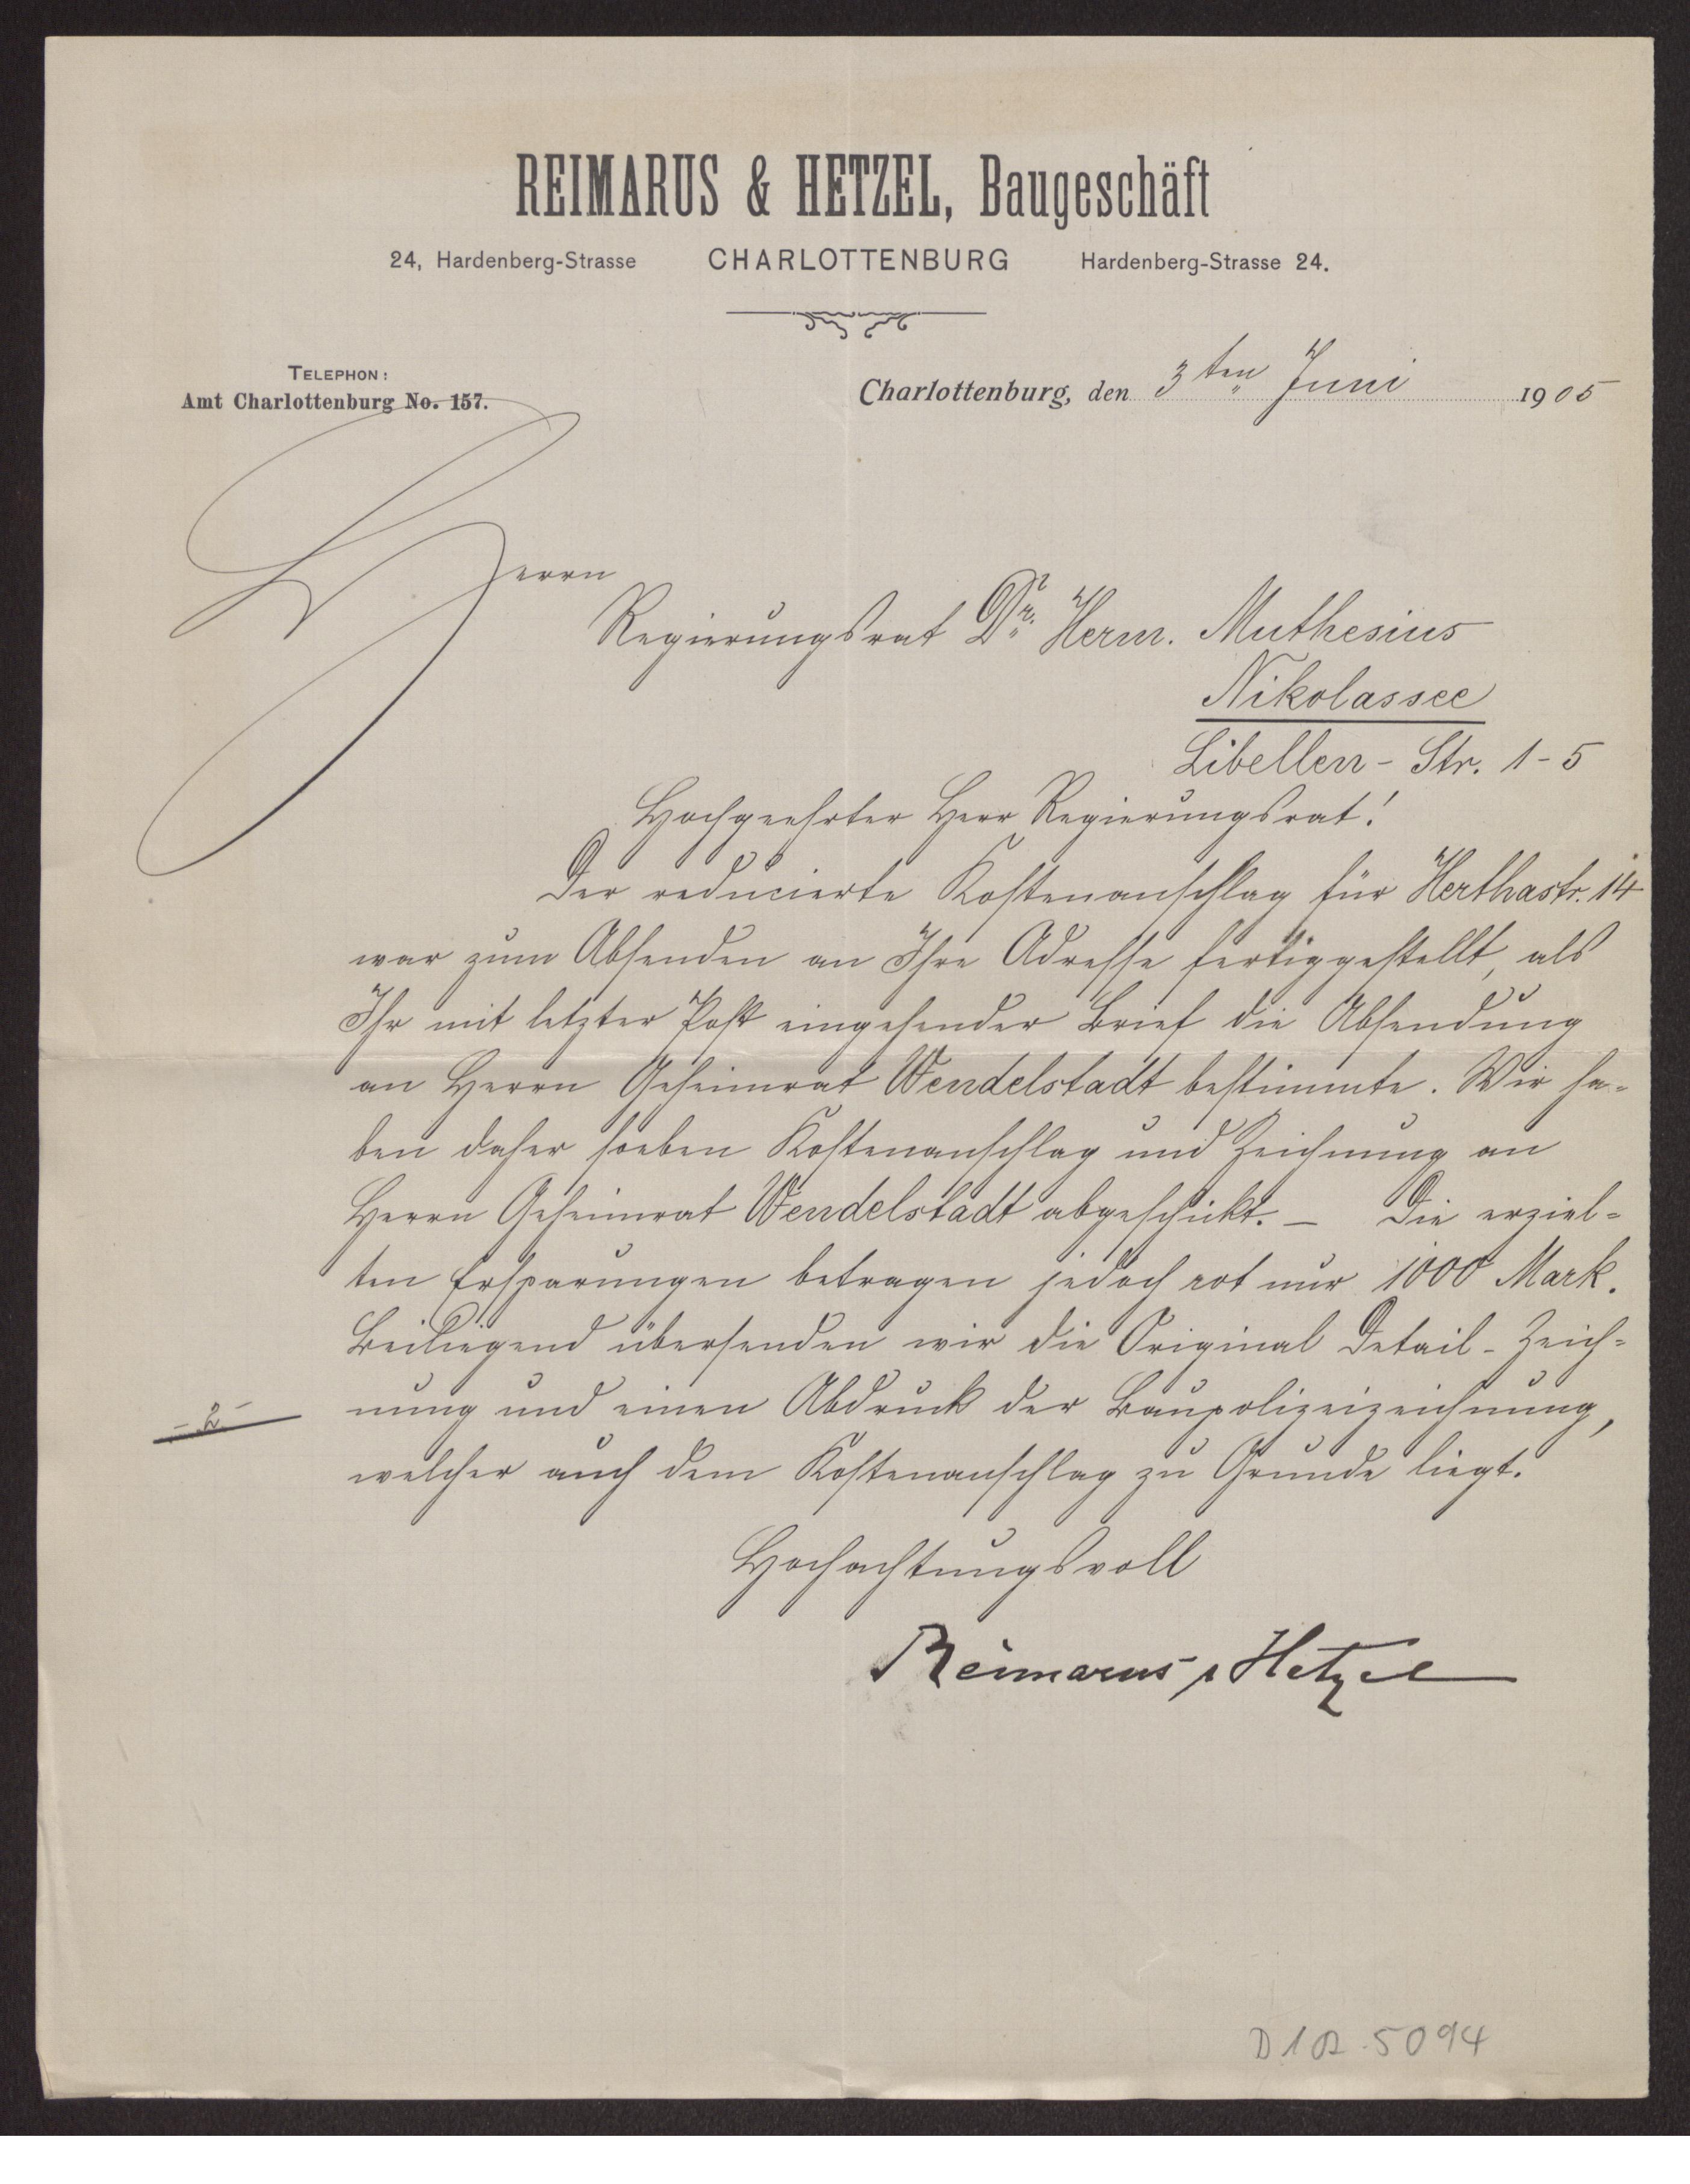 REIMARUS & HETZEL, Baugeschäft
24, Hardenberg-Strasse CHARLOTTENBURG Hardenberg-Strasse 24.
TELEPHON:
Amt Charlottenburg No. 157.
Charlottenburg, den 3ten Juni 1905
Herrn
Regierungsrat Dr. Herm. Muthesius
Nikolassee
Libellen-Str. 1-5
Hochgeehrter Herr Regierungsrat!
Der reducierte Kostenanschlag für Herthastr. 14
war zum Absenden an Ihre Adresse fertiggestellt, als
Ihr mit letzter Post eingehender Brief die Absendung
an Herrn Geheimrat Wendelstadt bestimmte. Wir ha-
ben daher soeben Kostenanschlag und Zeichnung an
Herrn Geheimrat Wendelstadt abgeschickt. – Die erziel-
ten Ersparungen betragen jedoch rot nur 1000 Mark.
Beiliegend übersenden wir die Original Detail-Zeich-
nung und einen Abdruck der Baupolizeizeichnung,
-2-
welcher auch dem Kostenanschlag zu Grunde liegt.
Hochachtungsvoll
Reimarus & Hetzel
D 102-5094